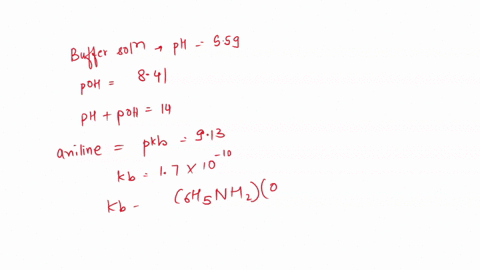 Buffer soln → pH = 5.59
pOH = 8.41
pH + pOH = 14
aniline = pkb = 9.13
kb = 1.7 × 10^-10
kb = (6H5NH2)(0